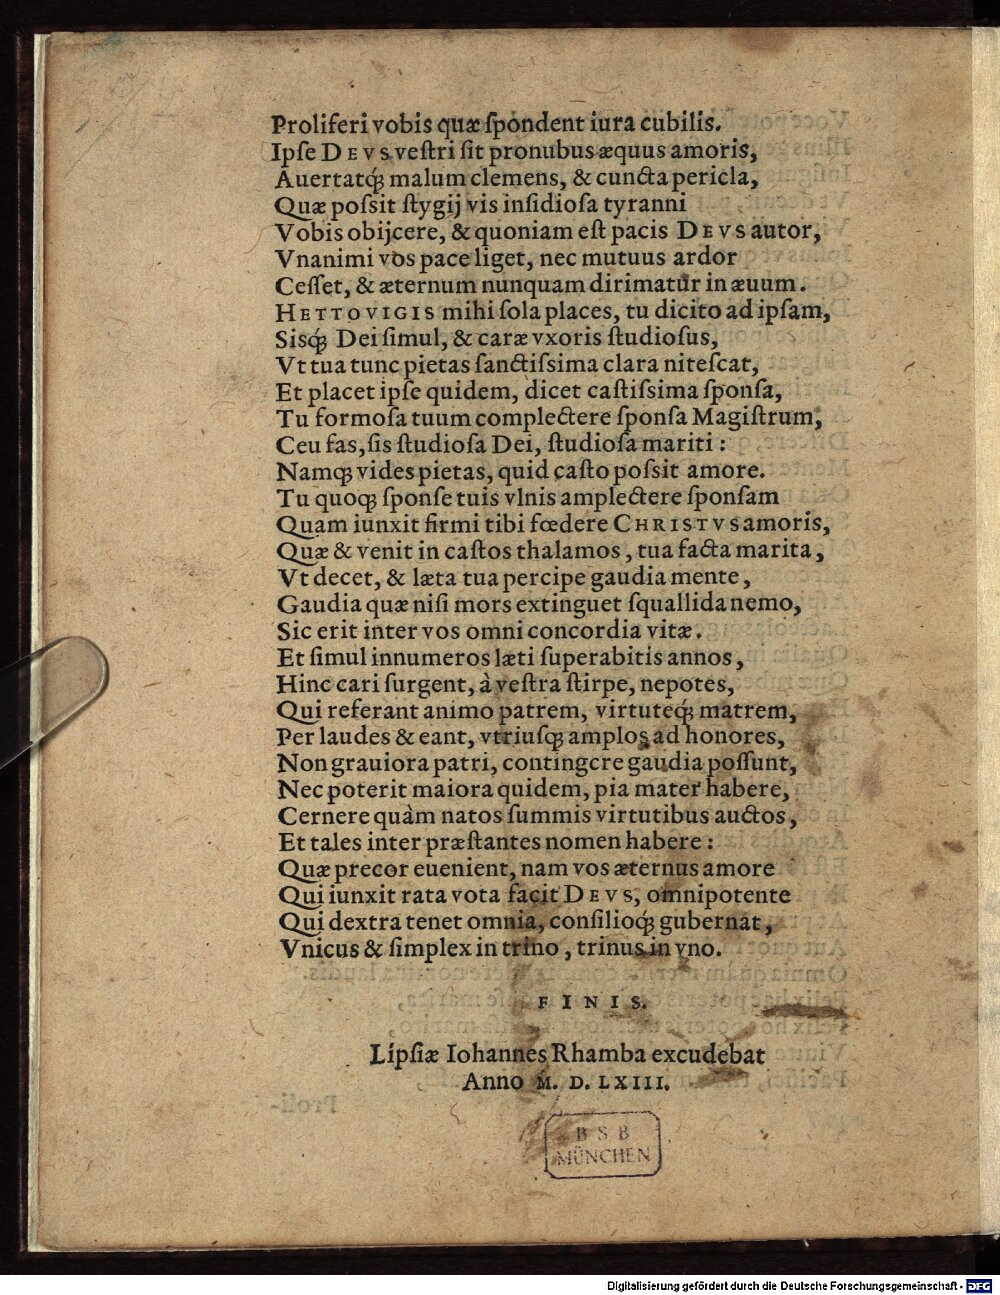 Proliferi vobis quæ ſpondent iura cubilis.
Ipſe DEVS veſtri ſit pronubus æquus amoris,
Auertatq́; malum clemens, & cuncta pericla,
Quæ poſsit ſtygij vis inſidioſa tyranni
Vobis obijcere, & quoniam eſt pacis DEVS autor,
Vnanimi vos pace liget, nec mutuus ardor
Ceſſet, & æternum nunquam dirimatur in æuum.
HETTOVIGIS mihi ſola places, tu dicito ad ipſam,
Sisq́; Dei ſimul, & caræ vxoris ſtudioſus,
Vt tua tunc pietas ſanctiſsima clara niteſcat,
Et placet ipſe quidem, dicet caſtiſsima ſponſa,
Tu formoſa tuum complectere ſponſa Magiſtrum,
Ceu fas, ſis ſtudioſa Dei, ſtudioſa mariti:
Namq; vides pietas, quid caſto poſsit amore.
Tu quoq; ſponſe tuis vlnis amplectere ſponſam
Quam iunxit firmi tibi fœdere CHRISTVS amoris,
Quæ & venit in caſtos thalamos, tua facta marita,
Vt decet, & læta tua percipe gaudia mente,
Gaudia quæ niſi mors extinguet ſquallida nemo,
Sic erit inter vos omni concordia vitæ.
Et ſimul innumeros læti ſuperabitis annos,
Hinc cari ſurgent, à veſtra ſtirpe, nepotes,
Qui referant animo patrem, virtuteq́; matrem,
Per laudes & eant, vtriuſq; amplos ad honores,
Non grauiora patri, contingere gaudia poſſunt,
Nec poterit maiora quidem, pia mater habere,
Cernere quàm natos ſummis virtutibus auctos,
Et tales inter præſtantes nomen habere:
Quæ precor euenient, nam vos æternus amore
Qui iunxit rata vota facit DEVS, omnipotente
Qui dextra tenet omnia, conſilioq́; gubernat,
Vnicus & ſimplex in trino, trinus in vno.
FINIS.
Lipſiæ Iohannes Rhamba excudebat
Anno M. D. LXIII.
BSB
MÜNCHEN
Digitalisierung gefördert durch die Deutsche Forschungsgemeinschaft - DFG